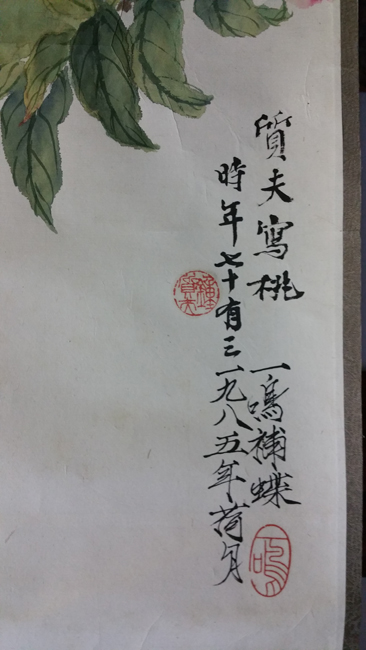 質夫寫桃
一鳴補蝶
時年七十有三
一九八五年荷月